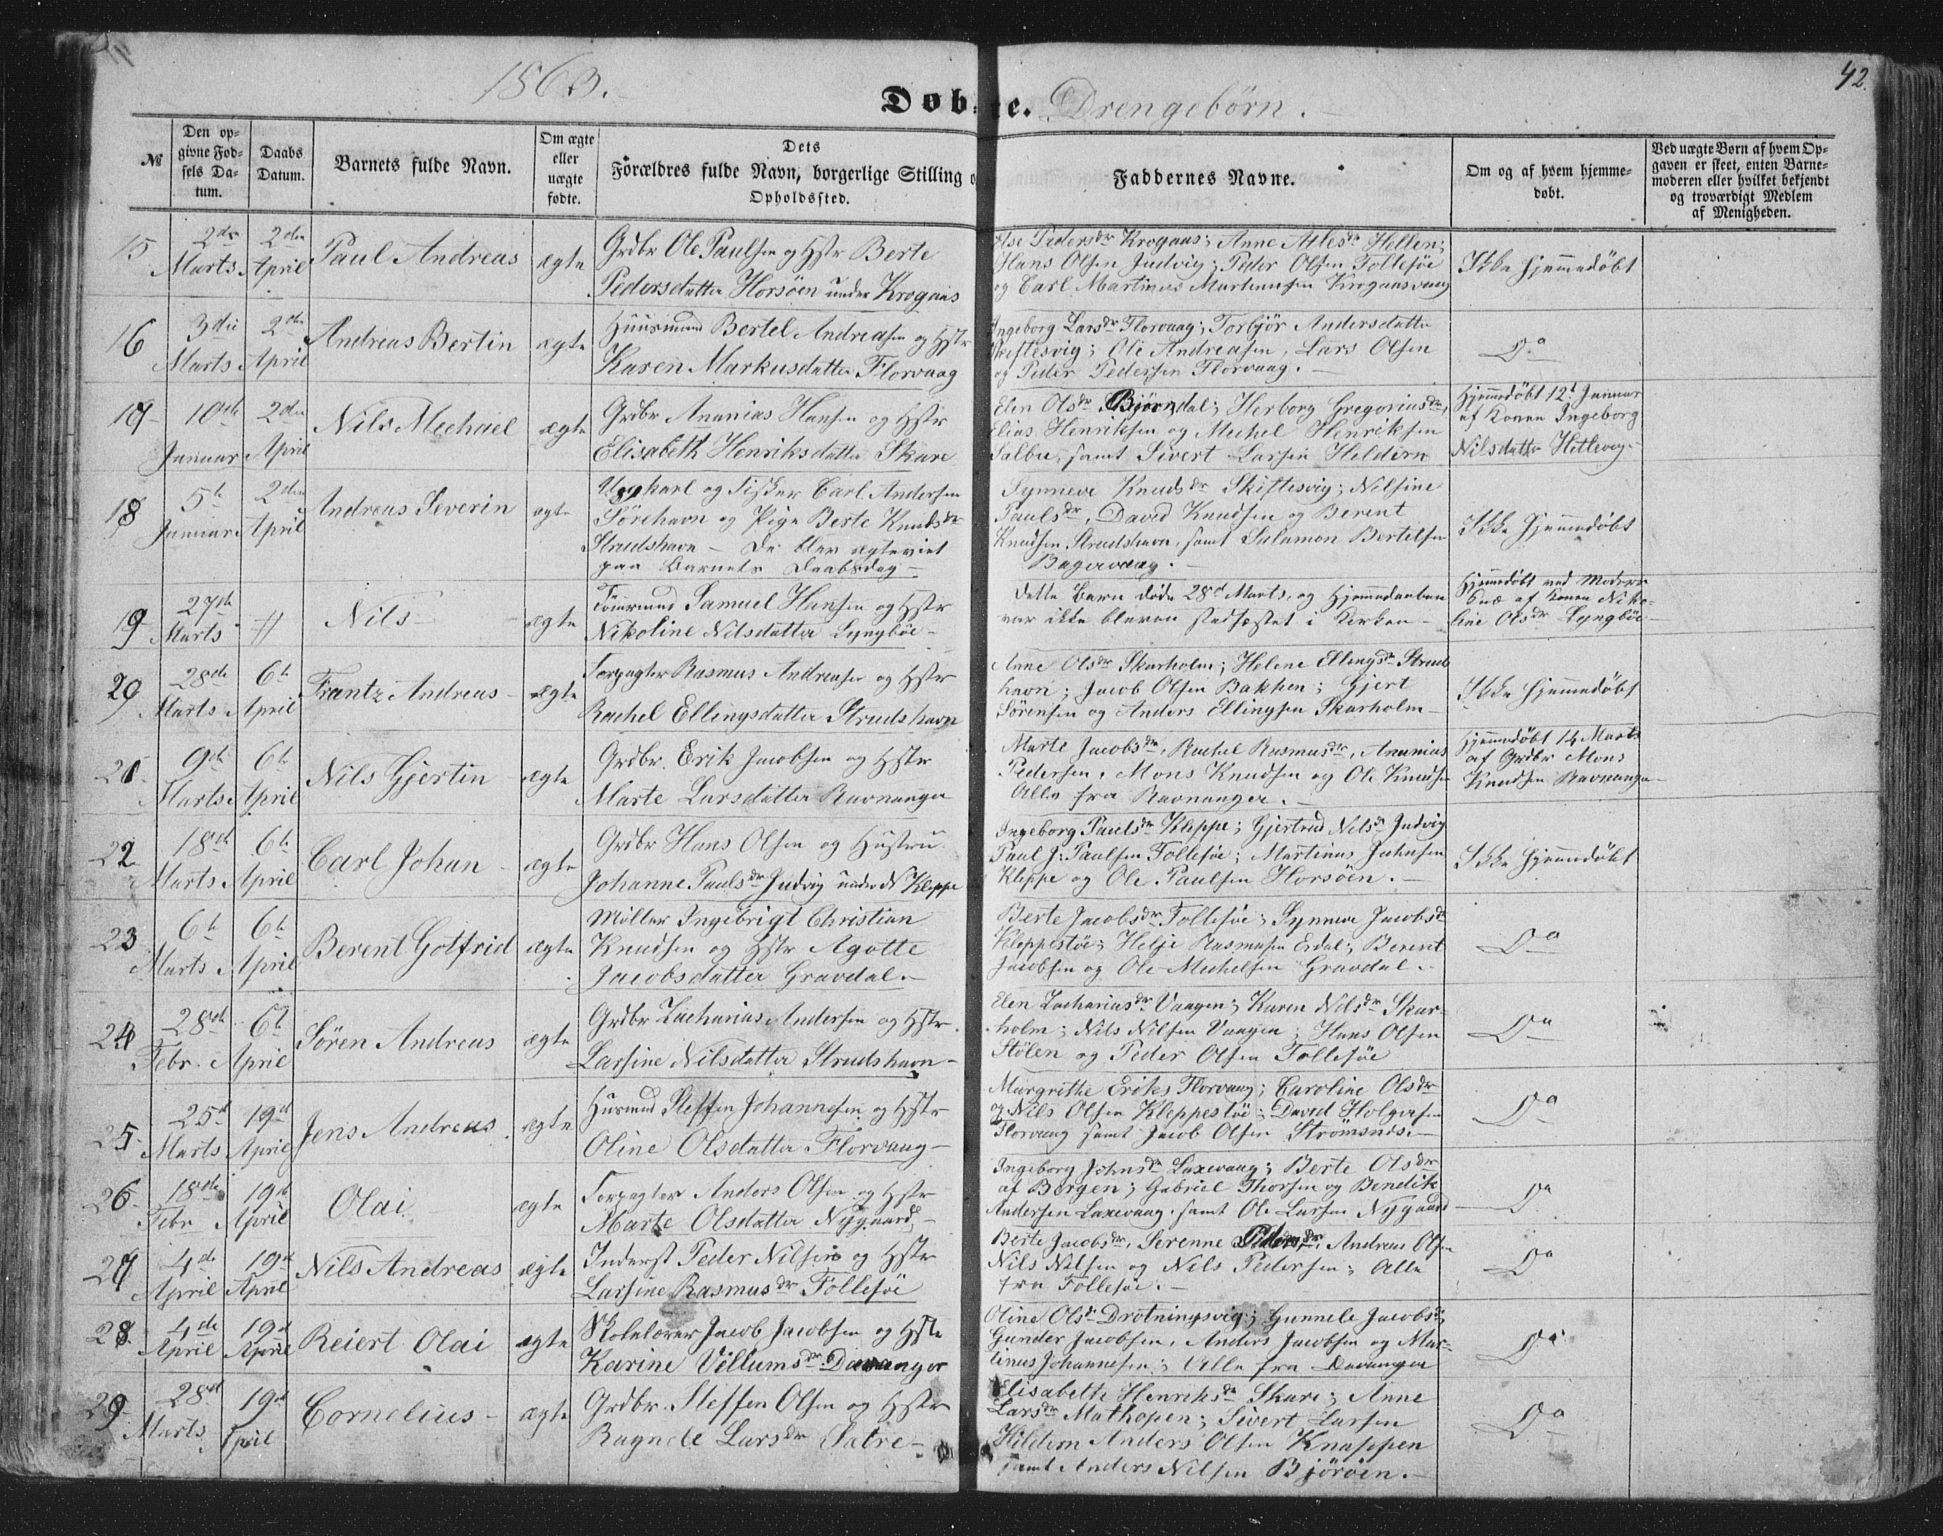 42.
1863.
Døbte. Drengebørn.
№
Den op-
givne Fød-
sels Da-
tum.
Daabs
Datum.
Barnets fulde Navn.
Om ægte
eller
uægte
fødte.
Dets
Forældres fulde Navn, borgerlige Stilling o
Opholdssted.
Faddernes Navne.
Om og af hvem hjemme-
døbt.
Ved uægte Børn af hvem Op-
gaven er skeet, enten Barne-
moderen eller hvilket bekjendt
og troværdigt Medlem
af Menigheden.
15
2den
Marts
2den
April
Paul Andreas
ægte
Grdbr Ole Paulsen og Hstr Berte
Pedersdatter Horsöen under Krogaas
Else Pedersdr Krogaas; Anne Atlesdr Hellen;
Hans Olsen Judvig; Peder Olsen Follesöe
og Carl Martinus Martinusen Krogaasvaag
Ikke hjemmedøbt
16
3die
Marts
2den
April
Andreas Bertin
ægte
Huusmand Bertel Andreasen og Hstr
Karen Markusdatter Florvaag
Ingeborg Larsdr Florvaag; Torbjør Andersdatter
Skiftesvig; Ole Andreasen, Lars Olsen
og Peder Pedersen Florvaag.
Do
17
10de
Januar
2den
April
Nils Mechael
ægte
Grdbr Ananias Hansen og Hstr
Elisabeth Henriksdatter Skare
Elen Olsdr Bjørndal; Herborg Gregoriusdr,
Elias Henriksen og Mechel Henriksen
Salbu, samt Sivert Larsen Heldern
Hjemmedøbt 12te Januar
af Konen Ingeborg
Nilsdatter Hettevig
18
5te
Januar
2den
April
Andreas Severin
ægte
Ungkarl og Fisker Carl Andersen
Sörehavn og Pige Berte Knudsdr
Strudshavn – De blev ægteviet
paa Barnets Daabsdag –
Synneve Knudsdr Skiftesvig; Nilsine
Paulsdr, David Knudsen og Berent
Knudsen Strudshavn, samt Salamon Bertelsen
Bagervaag.
Ikke hjemmedøbt
19
27de
Marts
//
Nils
ægte
Samuel Hansen og Hstr
Nikoline Nilsdatter Lyngböe
Dette Barn døde 28de Marts, og Hjemmedaaben
var ikke bleven stadfæstet i Kirken –
Hjemmedøbt ved Moderen
af Konen Niko-
line Olsdr Lyngböe
20
28de
Marts
6te
April
Frantz Andreas
ægte
Forpagter Rasmus Andreasen og Hstr
Rachel Ellingsdatter Strudshavn
Anne Olsdr Skarholm; Helene Ellingsdr Strud
havn; Jacob Olsen Bakken; Gjert
Sörensen og Anders Ellingsen Skarholm
Ikke hjemmedøbt
21
9de
Marts
6te
April
Nils Gjertin
ægte
Grdbr. Erik Jacobsen og Hstr
Marte Larsdatter Ravnanger
Marte Jacobsdr, Rachel Rasmusdr, Ananias
Pedersen, Mons Knudsen og Ole Knudsen
Alle fra Ravnanger.
Hjemmedøbt 14 Marts
af Grdbr Mons
Knudsen Ravnanger
22
18de
Marts
6te
April
Carl Johan
ægte
Grdbr Hans Olsen og Hustru
Johanne Paulsdr Judvig under Kleppe
Ingeborg Paulsdr Kleppe; Gjertrud Nilsdr Judvig
Paul J: Paulsen Follesöe; Martinus Jahnsen
Kleppe og Ole Paulsen Horsöen.
Ikke hjemmedøbt
23
6te
Marts
6te
April
Berent Gotfrid
ægte
Møller Ingebrigt Christian
Knudsen og Hstr Agotte
Jacobsdatter Gravdal.
Berte Jacobsdr Follesöe; Synneve Jacobsdr
Kleppestöe; Helje Rasmusen Erdal; Berent
Jacobsen og Ole Mechelsen Gravdal.
Do
24
28de
Febr.
6te
April
Sören Andreas
ægte
Grdbr Zacharias Andersen og Hstr
Larsine Nilsdatter Strudshavn
Elen Zachariasdr Vaagen; Karen Nilsdr Skar-
holm; Nils Nilsen Vaagen; Hans Olsen
Stölen og Peder Olsen Follesöe
Do
25
25de
Marts
19de
April
Jens Andreas
ægte
Husmand Steffen Johannesen og Hstr
Oline Olsdatter Florvaag
Margrethe Eriks Florvaag; Caroline Olsdr
og Nils Olsen Kleppestöe; David Holgersen
Florvaag samt Jacob Olsen Strömsnes.
Do
26
18de
Febr
19de
April
Olai
ægte
Forpagter Anders Olsen og Hstr
Marte Olsdatter Nygaard
Ingeborg Johnsdr Laxevaag; Berte Olsdr
af Bergen; Gabriel Thorsen og Bendik
Andersen Laxevaag, samt Ole Larsen Nygaard
Do
27
4de
April
19de
April
Nils Andreas
ægte
Inderst Peder Nilsen og Hstr
Larsine Rasmusdr Follesöe
Berte Jacobsdr, Serenne Pedersdr, Andreas Olsen
Nils Nilsen og Nils Pedersen; Alle
fra Follesöe.
Do
28
4de
April
19de
April
Reiert Olai
ægte
Skolelærer Jacob Jacobsen og Hstr
Karine Villumsdr Davanger
Oline Olsdr Drotningsvig; Gunnele Jacobsdr;
Gunder Jacobsen, Anders Jacobsen og Mar-
tinus Johannesen; Alle fra Davanger
Do
29
28de
Marts
19de
April
Cornelius
ægte
Grdbr. Steffen Olsen og Hstr
Ragnele Larsdr Satre
Elisabeth Henriksdr Skare; Anne
Larsdr Mathopen; Sivert Larsen
Hildern Anders Olsen Knappen
samt Anders Nilsen Björöen.
Do